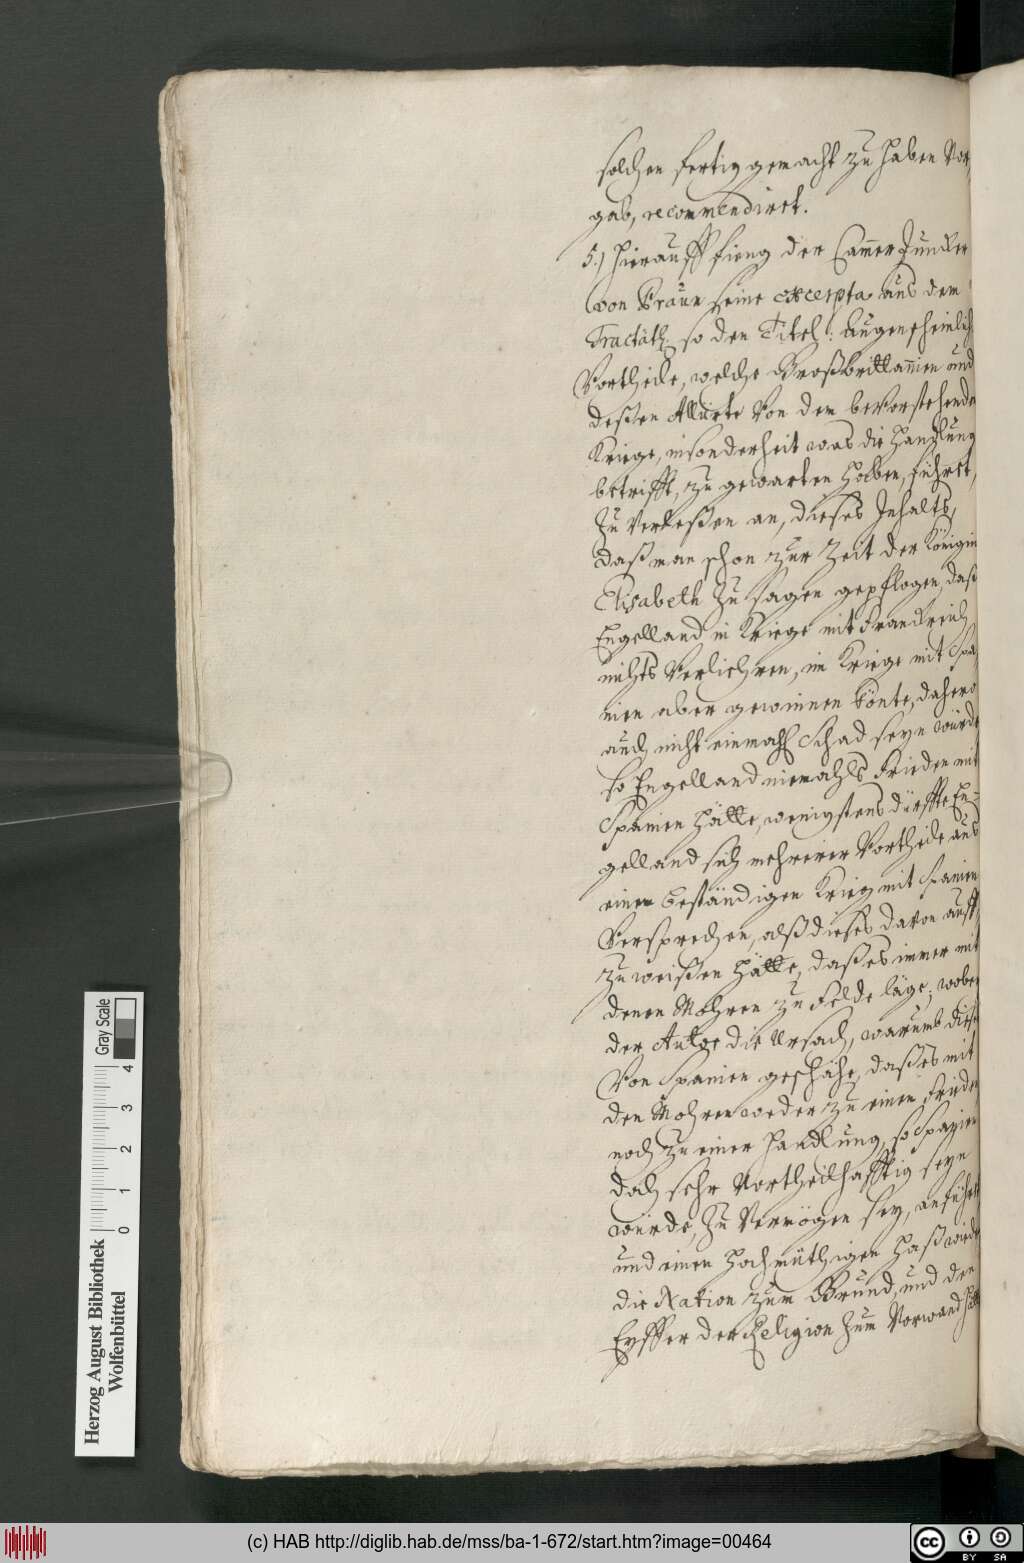 solchen fertig gemacht zu haben vor,
gab, recommendiret.
5.) Hierauff fieng der Cammer Juncker
von Braun seine excerpta aus dem
Tractätl. so den Titel: Augenscheinlich
Vortheile, welche Großbrittannien und
deßen Alliirte von dem bevorstehende
Kriege, insonderheit was die Handlung
betrifft, zu gewarten haben, führet,
zu verleßen an, dieses Inhalts,
daß man schon zur Zeit der Königin
Elisabeth zu sagen gepflogen, daß
Engelland in Kriege mit Franckreich
nichts verliehren, im Kriege mit Spa,
nien aber gewinnen könte, dahero
auch nicht einmahl Schad seyn würde
so Engelland niemahls Frieden mit
Spanien hätte, wenigstens dürffte En=
gelland sich mehrerer Vortheile aus
einem beständigen Krieg mit Spanien
versprechen, alß dieses davon auff,
zuweißen hätte, daß es immer mit
denen Mohren zu Felde läge; wobey
der Autor die Ursach, warumb diese
von Spanien geschähe, daß es mit
den Mohren weder zu einen Frieden
noch zu einer Handlung, so Spanien
doch sehr vortheilhafftig seyn
würde, zu vermögen sey, anführet
und einen hochmüthigen Haß wieder
die Nation zum Grund, und den
Eyffer der Religion zum Vorwand hätt
Herzog August Bibliothek
Wolfenbüttel
0 1 2 3 4
Gray Scale
(c) HAB http://diglib.hab.de/mss/ba-1-672/start.htm?image=00464
cc BY SA